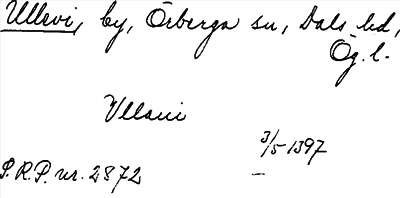 Ullevi, by, Örberga sn, Dals hd,
Ög. l.
Vllaui
3/5 1397
S.R.P. nr. 2872 –